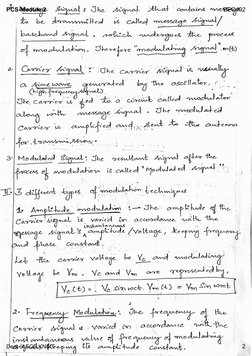 PCS Module 2
Message signal : The signal that contains message
to be transmitted is called message signal/
baseband signal, which undergoes the process
of modulation. Therefore "modulating signal" m(t)
2. Carrier signal : The carrier signal is usually
a sine wave generated by the oscillator.
(high frequency signal)
The carrier is fed to a circuit called modulator
along with message signal. The modulated
carrier is amplified and sent to the antenna
for transmission.
3. Modulated Signal : The resultant signal after the
process of modulation is called "Modulated signal".
II. 3 different types of modulation techniques
1. Amplitude modulation :— The amplitude of the
carrier signal is varied in accordance with the
instantaneous
message signal's amplitude/voltage, keeping frequency
and phase constant.
Let the carrier voltage be Vc and modulating
voltage be Vm. Vc and Vm are represented by,
Vc(t) = Vc sin wct. Vm(t) = Vm sin wmt
2. Frequency Modulation : The frequency of the
carrier signal is varied in accordance with the
instantaneous value of frequency of modulating
keeping its amplitude constant.
2